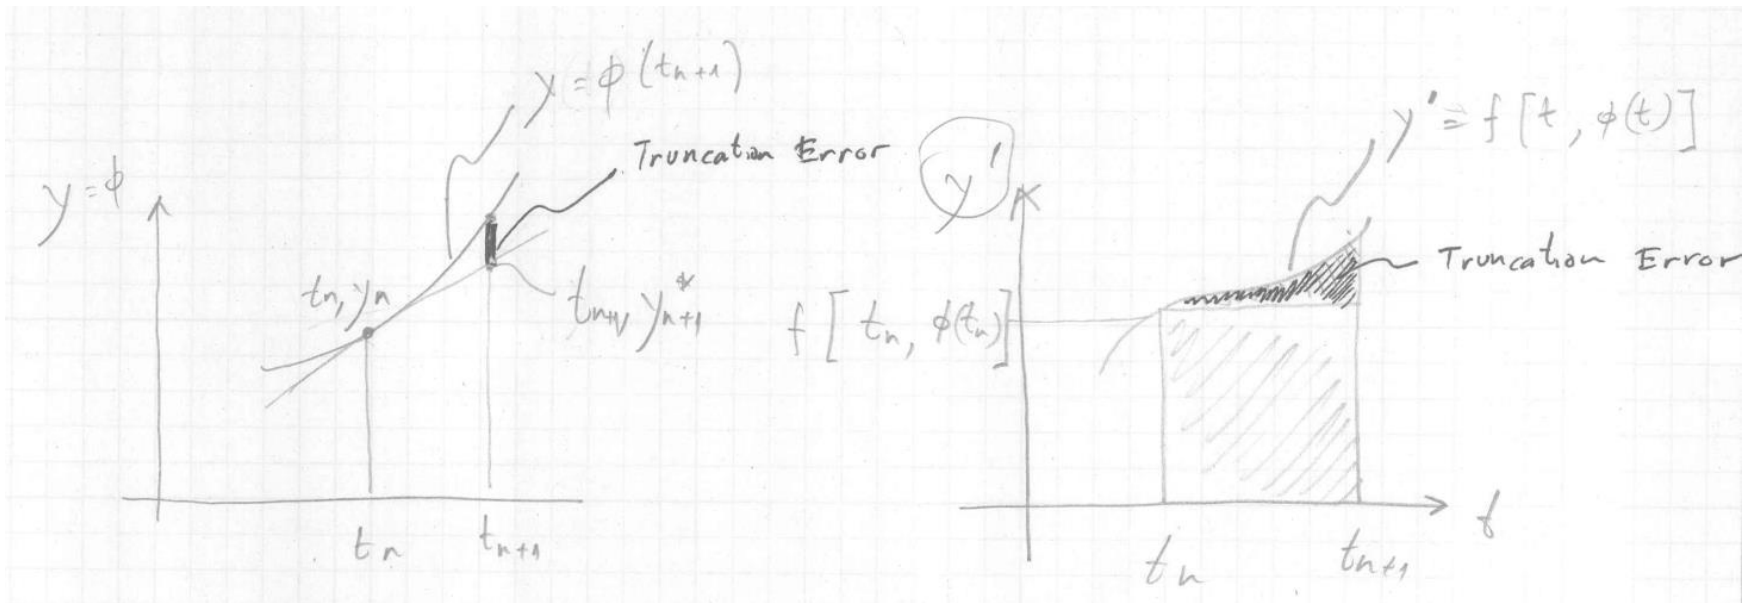 y = ϕ(t_{n+1})
Truncation Error
y=ϕ
t_n, y_n
t_{n+1}, y*_{n+1}
t_n
t_{n+1}
y'
y' = f[t, ϕ(t)]
Truncation Error
f[t_n, ϕ(t_n)]
t
t_n
t_{n+1}